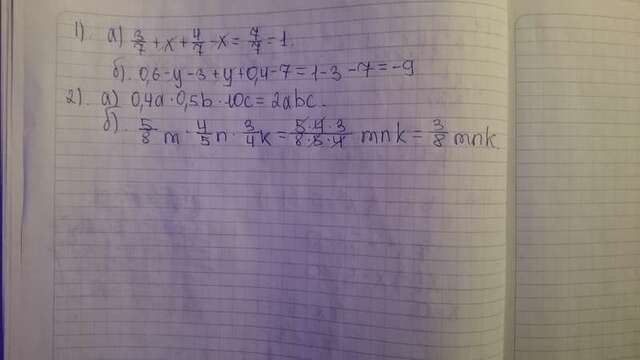 1). а) 3/7 + x + 4/7 - x = 7/7 = 1.
б). 0,6 - y - 3 + y + 0,4 - 7 = 1 - 3 - 7 = -9
2). а) 0,4a · 0,5b · 10c = 2abc.
б). 5/8 m · 4/5 n · 3/4 k = 5·4·3/8·5·4 mnk = 3/8 mnk.